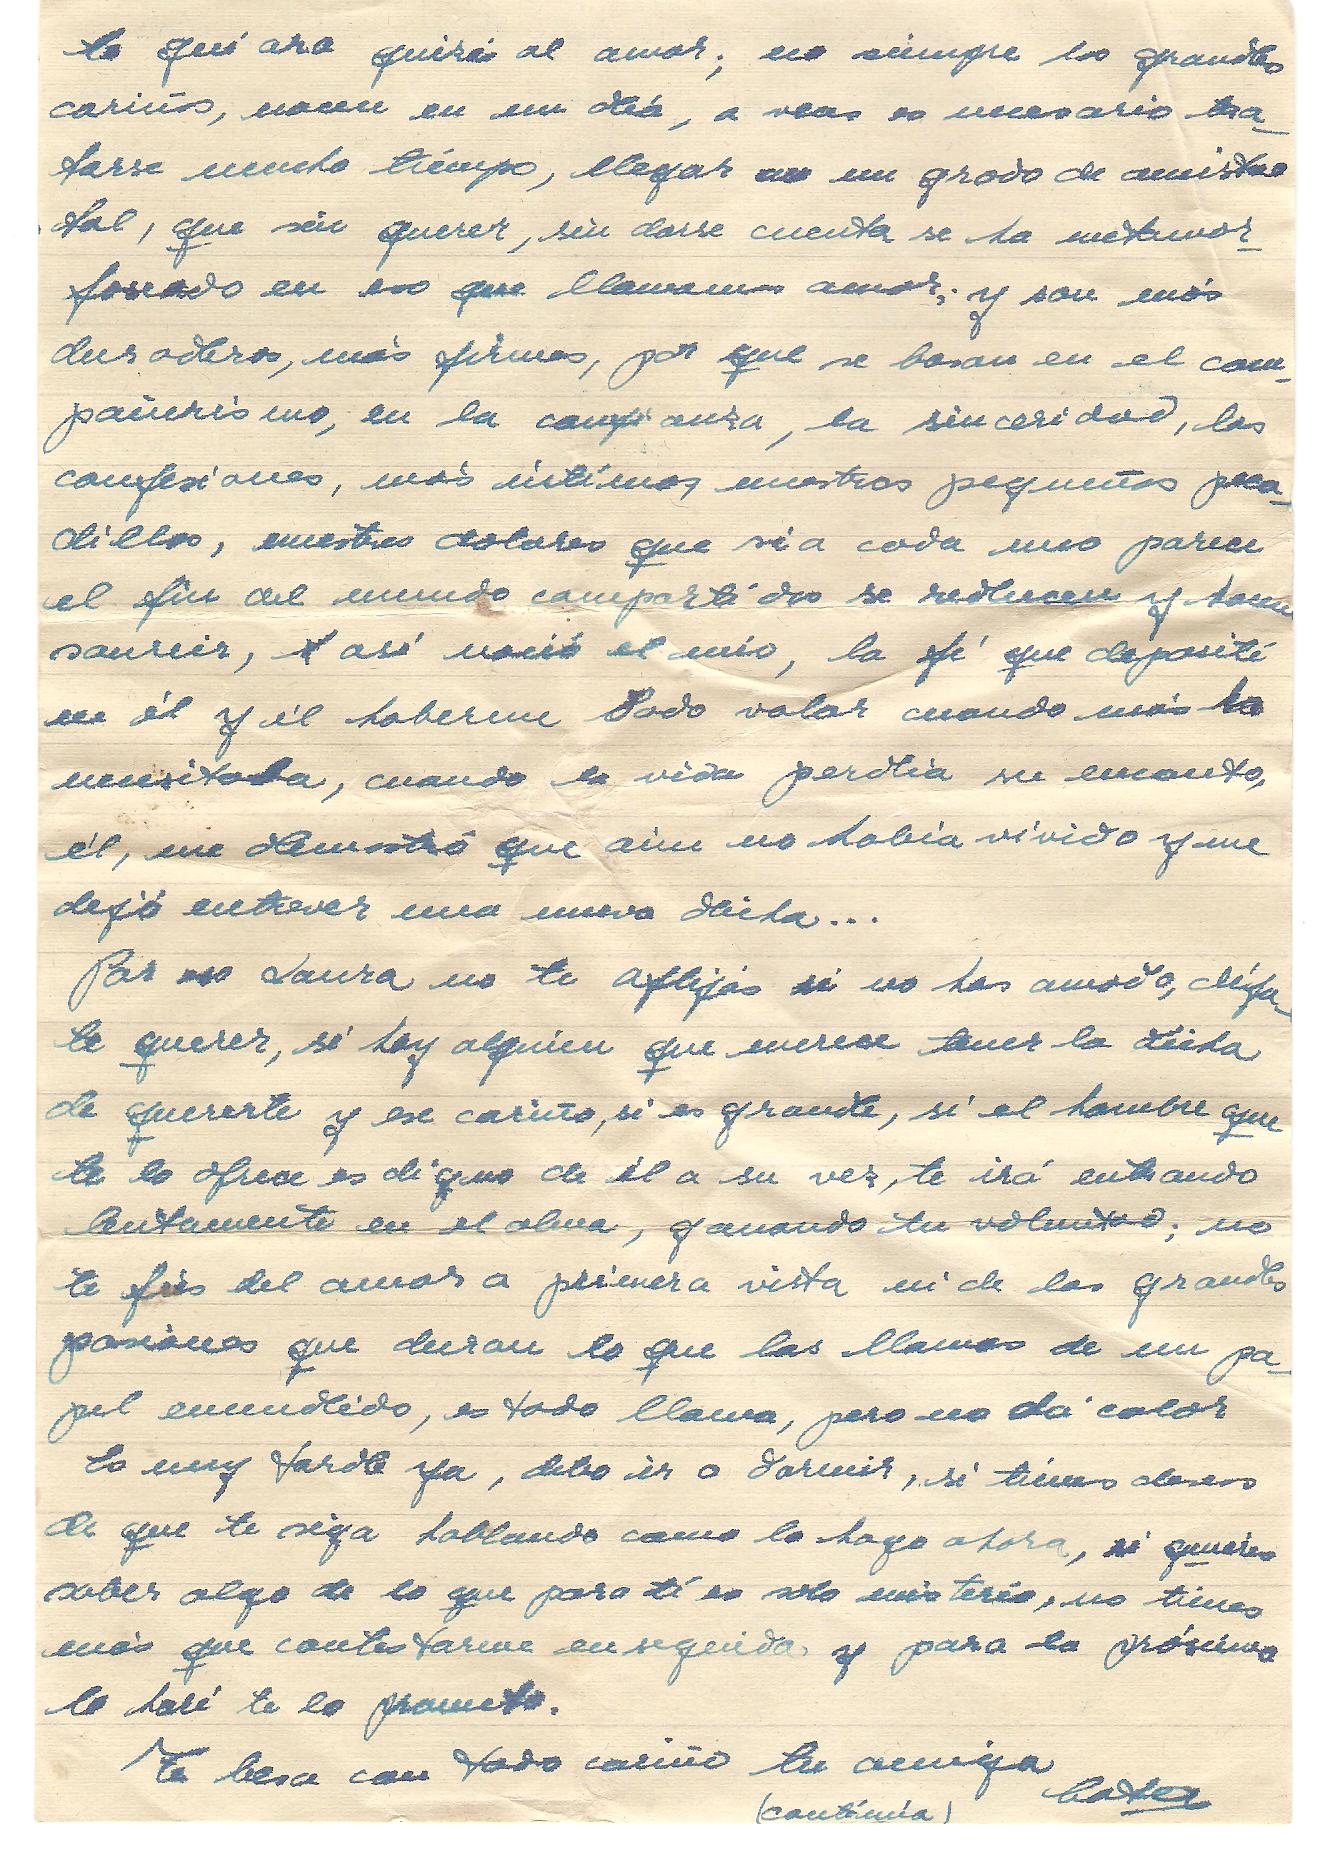 te quiara quizá al amor; no siempre los grandes
cariños, nacen en un día, a veces es necesario tra-
tarse mucho tiempo, llegar a un grado de amistad
tal, que sin querer, sin darse cuenta se ha metamor-
foseado en eso que llamamos amor; y son más
duraderos, más firmes, por que se basan en el com-
pañerismo, en la confianza, la sinceridad, las
confesiones, más íntimas nuestros pequeños peca-
dillos, nuestros dolores que si a cada uno parecen
el fin del mundo compartidos se reducen y hacen
sonreir, Y así nació el mío, la fé que deposité
en él y él haberme dado valor cuando más lo
necesitaba, cuando la vida perdía su encanto,
él, me demostró que aún no había vivido y me
dejó entrever una nueva dicha...
Por eso Laura no te aflijas si no has amado, déja-
te querer, si hay alguien que merece tener la dicha
de quererte y ese cariño, si es grande, si el hombre que
te lo ofrece es digno de él a su vez, te irá entrando
lentamente en el alma, ganando tu voluntad; no
te fíes del amor a primera vista ni de las grandes
pasiones que duran lo que las llamas de un pa-
pel encendido, es todo llama, pero no dá calor
Es muy tarde ya, debo ir a dormir, si tienes deseos
de que te siga hablando como lo hago ahora, si quieres
saber algo de lo que para tí es solo misterio, no tienes
más que contestarme enseguida y para la próxima
lo haré te lo prometo.
Te besa con todo cariño tu amiga
(continúa)